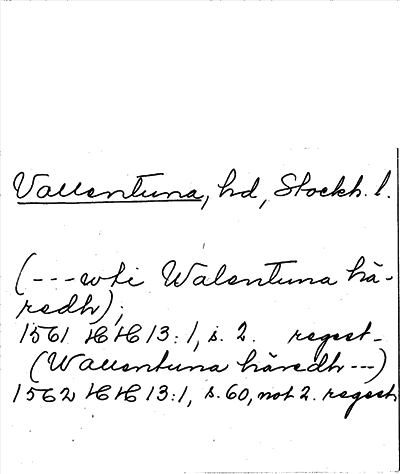 Vallentuna, hd, Stockh. l.
(---wti Walentuna hä-
redh);
1561 HH 13:1, s. 2. regest-
(Wallentuna häredh ---)
1562 HH 13:1, s. 60, not 2. regest